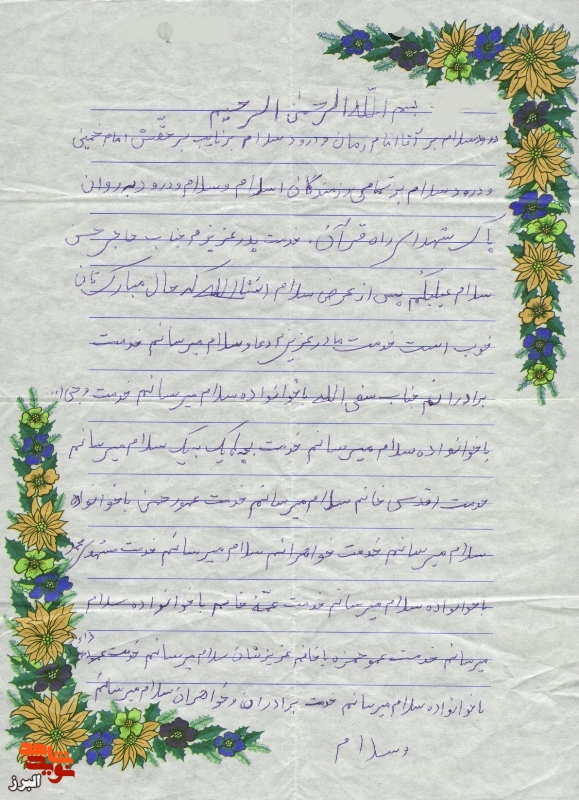 بسم الله الرحمن الرحیم
درود سلام بر آقا امام زمان و درود سلام بر نایب بر حقش امام خمینی
و درود سلام بر تمامی رزمندگان اسلام و سلام و درود به روان
پاک شهدای راه قرآن. خدمت پدر عزیزم جناب حاجی حسن
سلام علیکم پس از عرض سلام انشاالله که حال مبارکتان
خوب است خدمت مادر عزیزم دعا و سلام میرسانم خدمت
برادرانم جناب سفی الله با خوانواده سلام میرسانم خدمت وجی ا...
با خوانواده سلام میرسانم خدمت بچه ها یک بیک سلام میرسانم
خدمت اقدسی خانم سلام میرسانم خدمت عمو حسن با خوانواده
سلام میرسانم خدمت خواهرانم سلام میرسانم خدمت مشهدی محمد
با خوانواده سلام میرسانم خدمت عمّه خانم با خوانواده سلام
میرسانم خدمت عمو حمزه با خانم عزیزشان سلام میرسانم خدمت
با خوانواده سلام میرسانم خدمت برادران و خواهران سلام میرسانم
و سلام
البرز